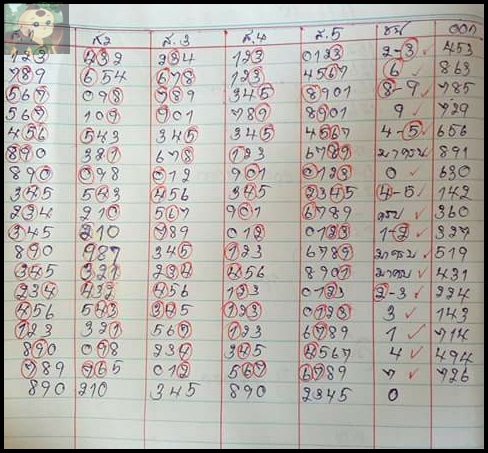 ส.2 ส.3 ส.4 ส.5 ชน ออก
123 432 234 123 0123 2-3 453
789 654 678 123 4567 6 863
567 098 789 345 8901 8-9 785
567 109 901 789 8901 9 729
456 543 345 345 4567 4-5 656
890 321 678 123 6789 891
890 098 012 901 0123 0 630
345 543 456 345 2345 4-5 142
234 210 567 901 6789 360
345 210 789 012 0123 1-2 327
890 987 345 123 6789 519
345 321 234 456 8901 431
234 432 456 123 0123 2-3 224
456 543 345 123 0123 3 143
123 321 567 123 6789 1 714
890 098 234 345 4567 4 494
789 765 012 567 6789 7 726
890 210 345 890 2345 0